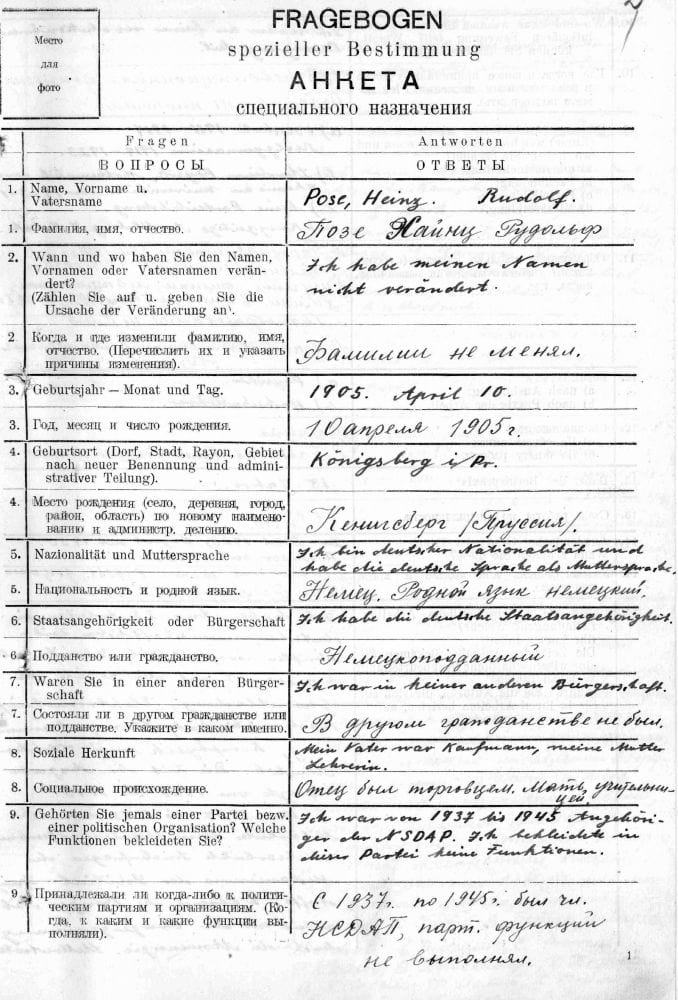 Место
для
фото
FRAGEBOGEN
spezieller Bestimmung
АНКЕТА
специального назначения
Fragen
Antworten
ВОПРОСЫ
ОТВЕТЫ
1. Name, Vorname u.
Vatersname
Pose, Heinz. Rudolf.
1. Фамилия, имя, отчество.
Позе Хайнц Рудольф
2. Wann und wo haben Sie den Namen,
Vornamen oder Vatersnamen verän-
dert?
(Zählen Sie auf u. geben Sie die
Ursache der Veränderung an).
Ich habe meinen Namen
nicht verändert.
2 Когда и где изменили фамилию, имя,
отчество. (Перечислить их и указать
причины изменения).
Фамилии не менял.
3. Geburtsjahr — Monat und Tag.
1905. April 10.
3. Год, месяц и число рождения.
10 апреля 1905 г.
4. Geburtsort (Dorf, Stadt, Rayon, Gebiet
nach neuer Benennung und admini-
strativer Teilung).
Königsberg i/Pr.
4. Место рождения (село, деревня, город,
район, область) по новому наимено-
ванию и администр. делению.
Кенигсберг /Пруссия/.
5. Nazionalität und Muttersprache
Ich bin deutscher Nationalität und
habe die deutsche Sprache als Muttersprache.
5. Национальность и родной язык.
Немец. Родной язык немецкий.
6. Staatsangehörigkeit oder Bürgerschaft
Ich habe die deutsche Staatsangehörigkeit.
6 Подданство или гражданство.
Немецкоподданный
7. Waren Sie in einer anderen Bürger-
schaft
Ich war in keiner anderen Bürgerschaft.
7. Состояли ли в другом гражданстве или
подданстве. Укажите в каком именно.
В другом гражданстве не был.
8. Soziale Herkunft
Mein Vater war Kaufmann, meine Mutter
Lehrerin.
8. Социальное происхождение.
Отец был торговцем. Мать, учительни-
цей.
9. Gehörten Sie jemals einer Partei bezw.
einer politischen Organisation? Welche
Funktionen bekleideten Sie?
Ich war von 1937 bis 1945 Angehöri-
ger der NSDAP. Ich bekleidete in
dieser Partei keine Funktionen.
9 Принадлежали ли когда-либо к полити-
ческим партиям и организациям. (Ко-
гда, к каким и какие функции вы-
полняли).
С 1937г. по 1945г. был чл.
НСДАП, парт. функций
не выполнял.
1